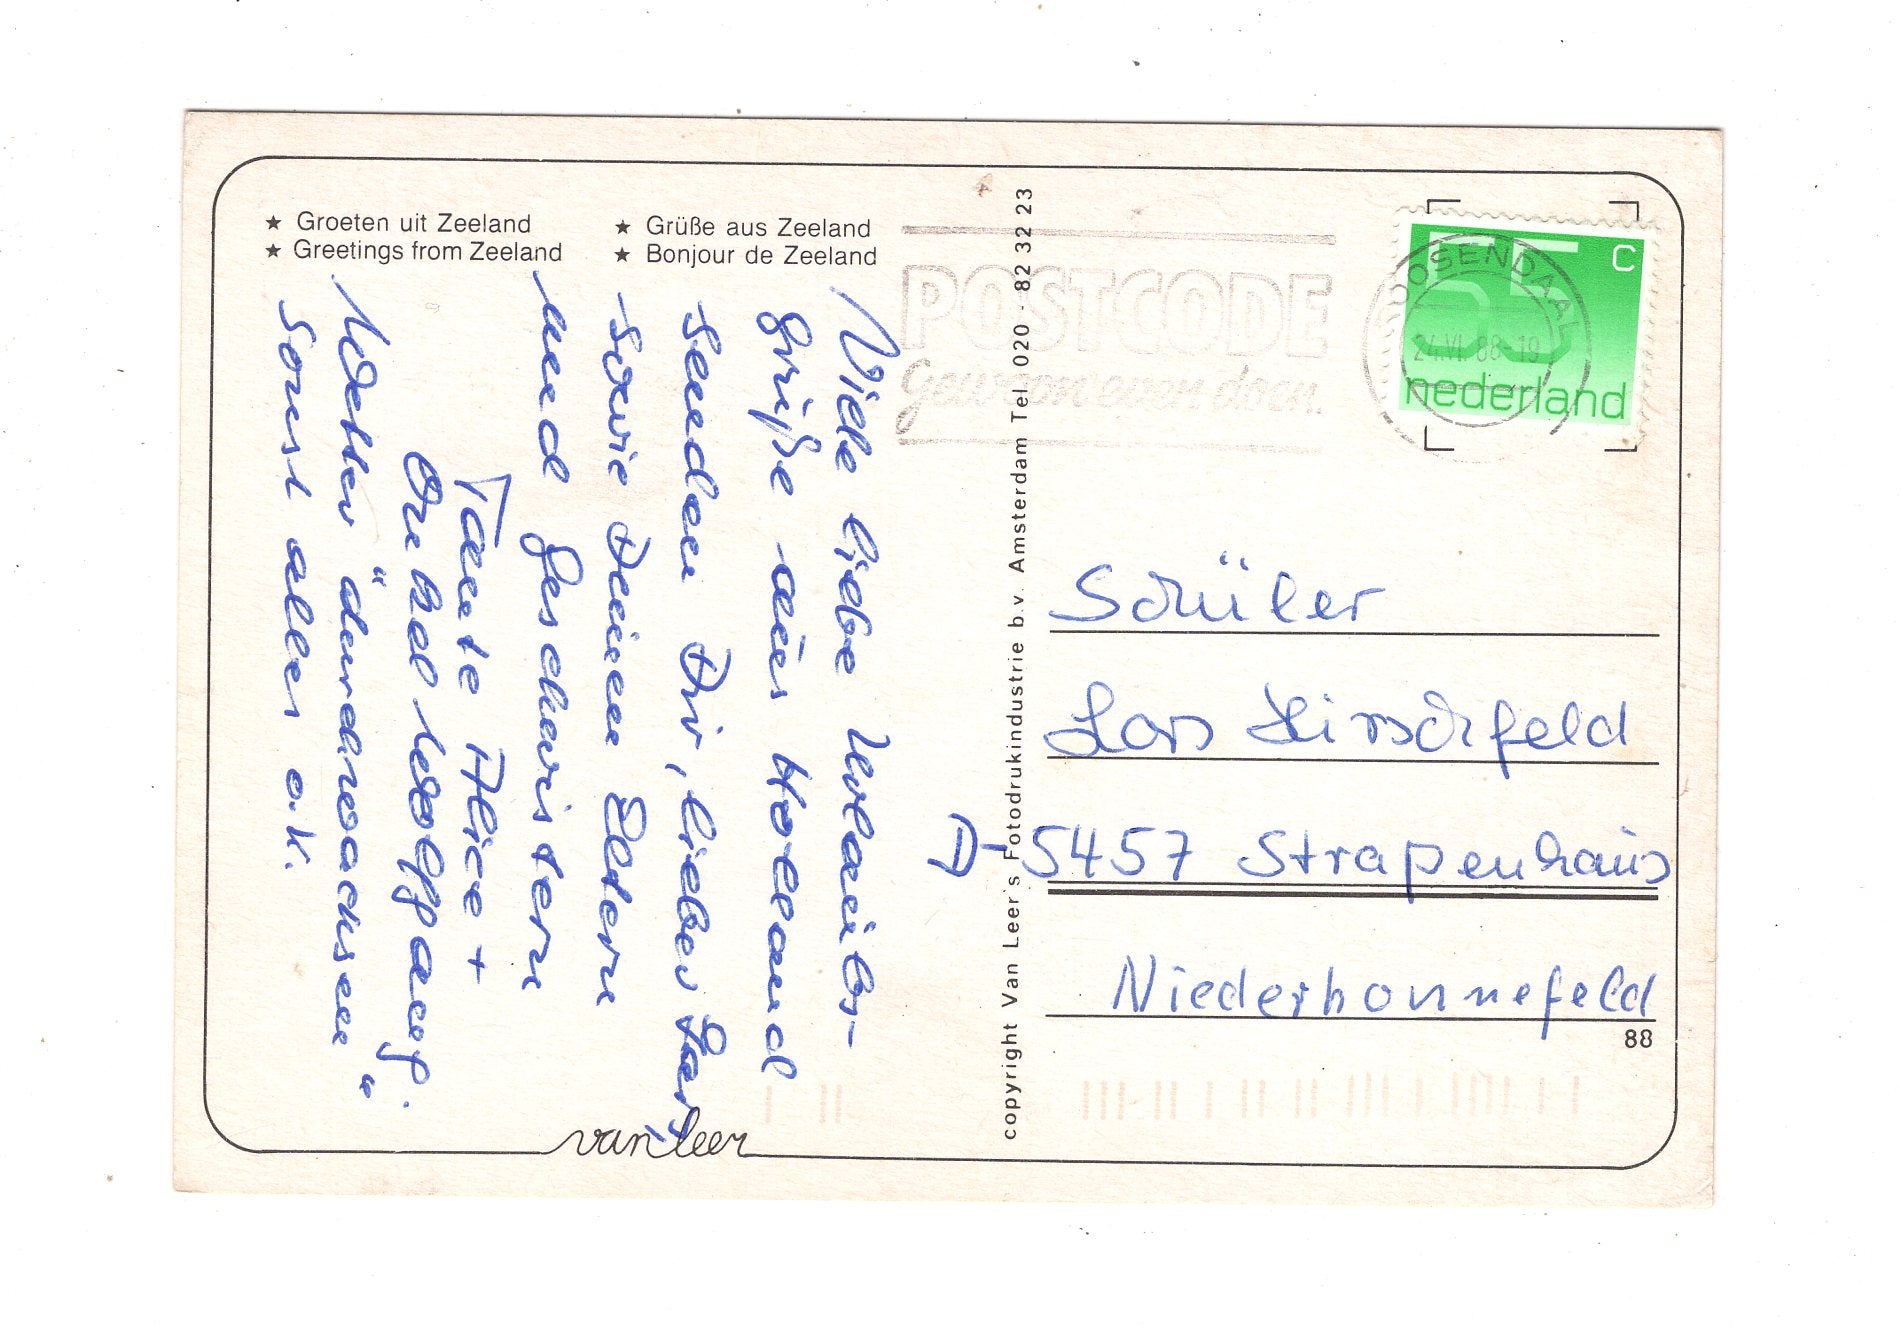 ★ Groeten uit Zeeland
★ Greetings from Zeeland
★ Grüße aus Zeeland
★ Bonjour de Zeeland
Viele liebe Urlaubs-
grüße aus Holland
senden Dir, lieber Lars,
sowie Deinen Eltern
und Geschwistern
Tante Alice +
Onkel Wolfgang.
Wetter "durchwachsen"
Sonst alles o.k.
van leer
copyright Van Leer's Fotodrukindustrie b.v. Amsterdam Tel. 020 - 82 32 23
POSTCODE
Gewoon even doen.
55 c
nederland
OOSENDAAL
24.VI.88-19
Schüler
Lars Hirschfeld
D-5457 Straßenhaus
Niederhonnefeld
88